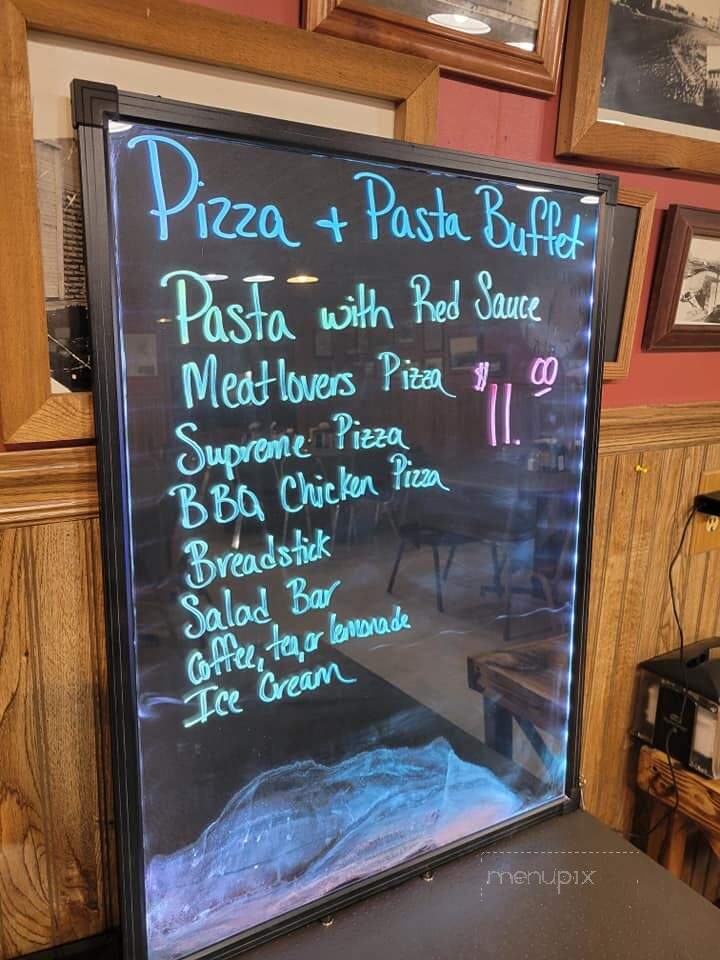 Pizza + Pasta Buffet
Pasta with Red Sauce
Meatlovers Pizza $11.00
Supreme Pizza
BBQ Chicken Pizza
Breadstick
Salad Bar
Coffee, tea, or lemonade
Ice Cream
menupix